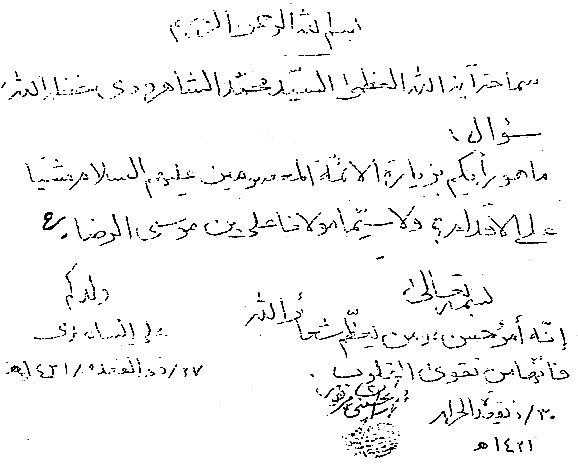 بسم الله الرحمن الرحيم
سماحة آية الله العظمى السيد محمد الشاهرودي حفظه الله
سؤال:
ما هو رأيكم بزيارة الأئمة المعصومين عليهم السلام مشيا
على الأقدام؟ ولا سيما مولانا علي بن موسى الرضا ع
ولدكم
٢٧/ذو القعدة/١٤٢١هـ
بسمه تعالى
إنّه أمرٌ حسن، ومن يعظّم شعائر الله
فإنّها من تقوى القلوب.
٣٠/ذيقعدة الحرام
١٤٢١هـ